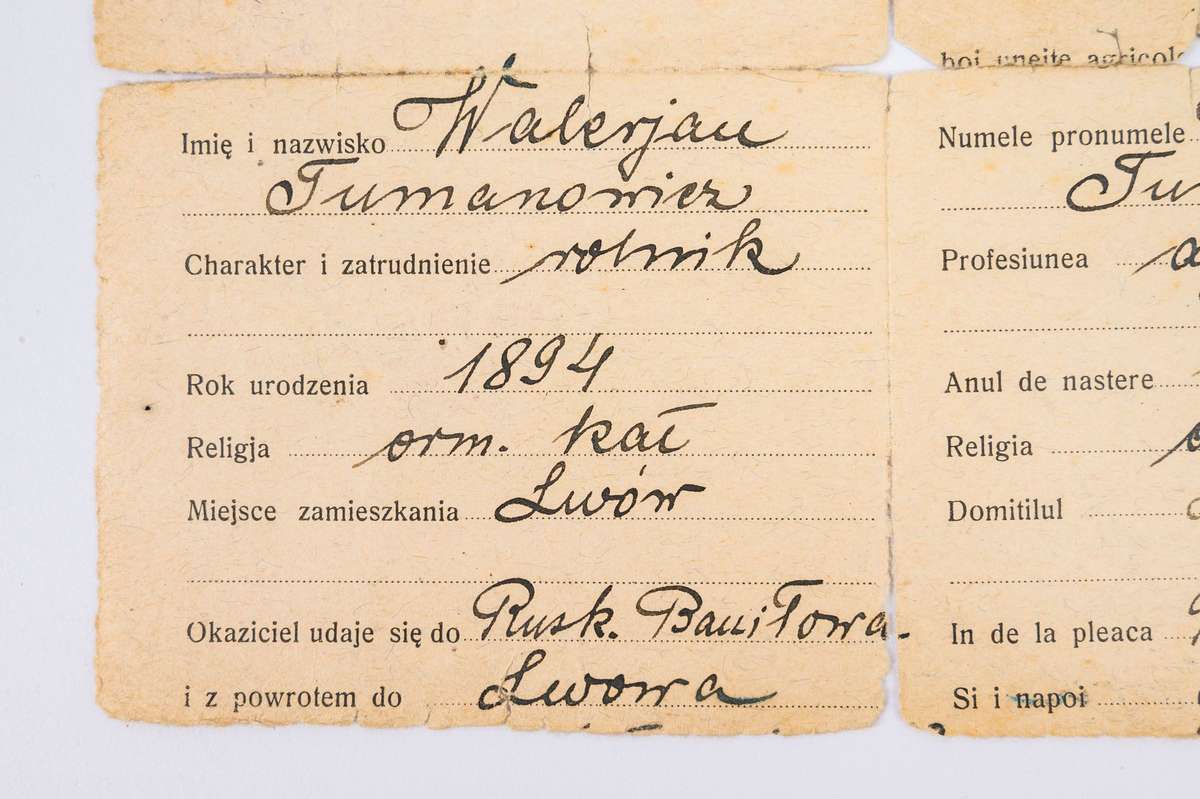 boi uneite agricole
Imię i nazwisko Walerjan
Tumanowicz
Charakter i zatrudnienie rolnik
Rok urodzenia 1894
Religja orm. kat
Miejsce zamieszkania Lwów
Okaziciel udaje się do Rusk. Baniłowa.
i z powrotem do Lwowa
Numele pronumele
Tu
Profesiunea a
Anul de nastere
Religia
Domitilul
In de la pleaca
Si i napoi